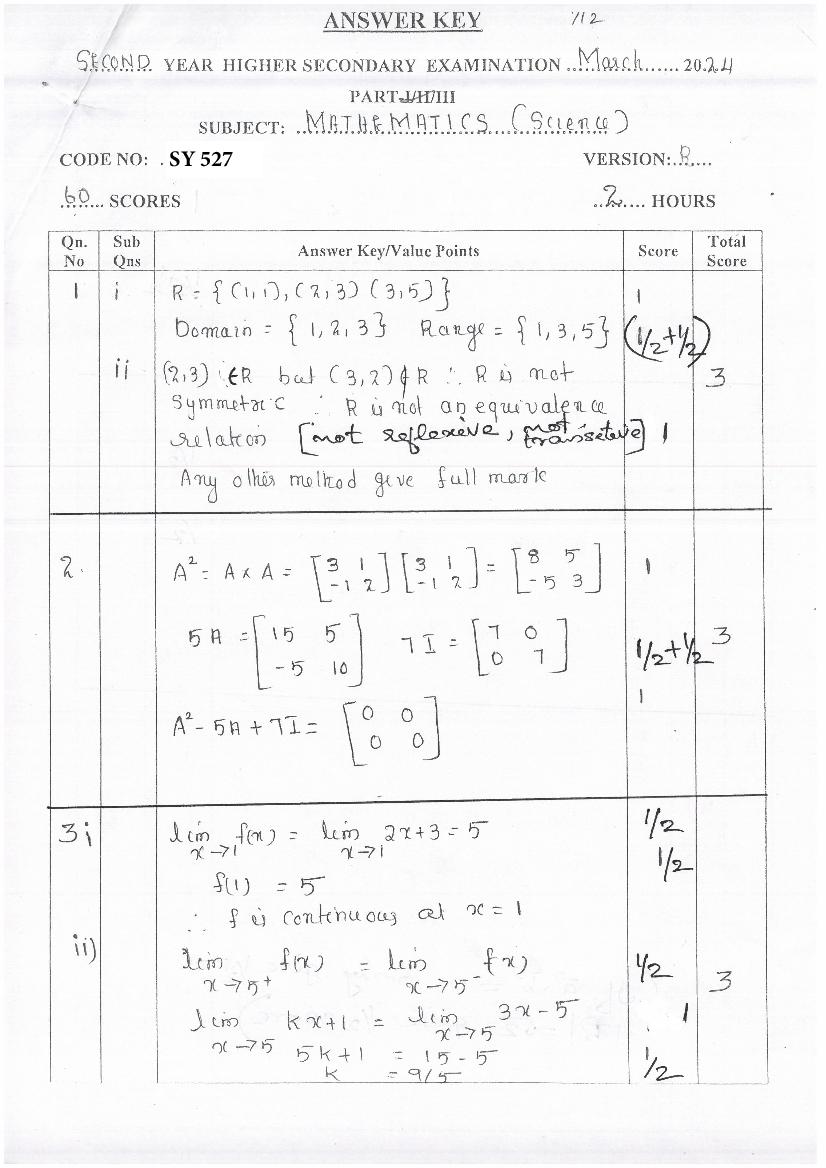 ANSWER KEY 1/12
SECOND YEAR HIGHER SECONDARY EXAMINATION ..March...... 2024
PART I/II/III
SUBJECT: MATHEMATICS (Science)
CODE NO: . SY 527 VERSION:..R....
60 SCORES ..2.... HOURS
Qn. No Sub Qns Answer Key/Value Points Score Total Score
1 i R = { (1,1), (2,3) (3,5) } 1
Domain = { 1, 2, 3 } Range = { 1, 3, 5 } (1/2+1/2)
ii (2,3) ∈R but (3,2) ∉ R ∴ R is not 3
Symmetric ∴ R is not an equivalence
relation [not reflexive, not transitive] 1
Any other method give full mark
2. A² = A × A = [3 1 -1 2] [3 1 -1 2] = [8 5 -5 3] 1
5A = [15 5 -5 10] 7I = [7 0 0 7] 1/2+1/2 3
A² - 5A + 7I = [0 0 0 0] 1
3 i lim x→1 f(x) = lim x→1 2x+3 = 5 1/2
f(1) = 5 1/2
∴ f is continuous at x = 1
ii) lim x→5⁺ f(x) = lim x→5⁻ f(x) 1/2 3
lim x→5 kx+1 = lim x→5 3x-5 1
5k+1 = 15-5
k = 9/5 1/2